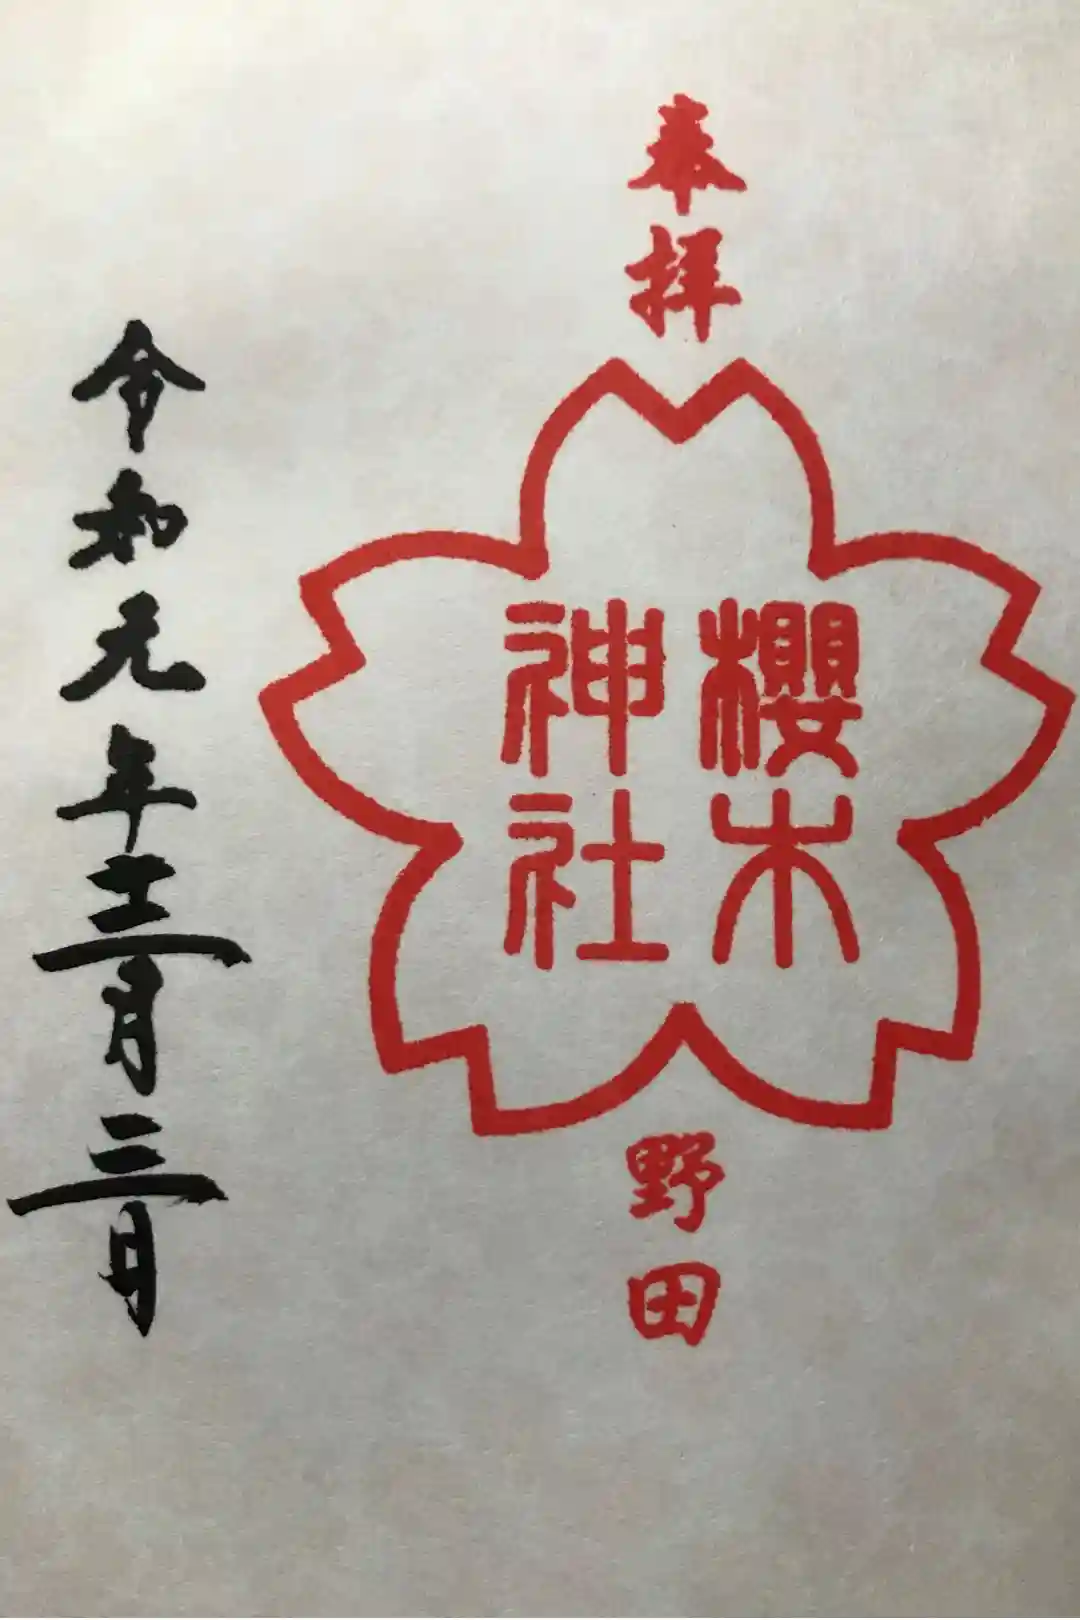 奉拝
櫻木
神社
野田
令和元年十二月三日